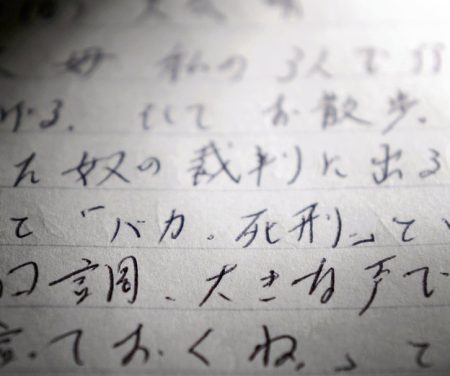 母 私の3人で
ける。そして お散歩。
た奴の裁判に出る
て「バカ。死刑」てい
口調、大きな声で
言っておくね。」て